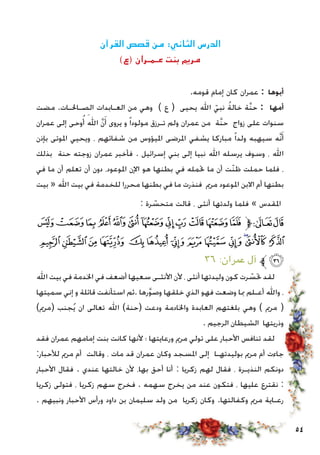 الدرس الثاني: من قصص القرآن
مريم بنت عـمـران (ع)
أبوها : عمران كان إمام قومه.
أمها : حنَّة خالةُ نبيّ الله يحيى ( ع ) وهي من العـابدات الصـالحـات. مضت
سنوات على زواج حنَّة من عمران ولم تـرزق مولوداً و يروى أنَّ الله أوحى إلى عمران
أنَّه سيهبه ولداً مباركا يشفي المرضى الميؤوس من شفائهم . ويحيي الموتى بإذن
الله . وسوف يرسله الله نبيا إلى بني إسرائيل . فأخبر عمران زوجته حنة بذلك
. فلما حملت ظنَّت أن ما تحمله في بطنها هو الإبن الموعود. دون أن تعلم أن ما في
بطنها أم الابن الموعود مريم فنذرت ما في بطنها محررا للخدمة في بيت الله « بيت
المقدس » فلما ولدتها أنثى . قالت متحسّرة :
قَالَ تَعَالَىٰ: ﴿ فَلَمَّا وَضَعَتْهَا قَالَتْ رَبِّ إِنِّي وَضَعْتُهَا أُنثَىٰ وَاللَّهُ أَعْلَمُ بِمَا وَضَعَتْ وَلَيْسَ
الذَّكَرُ كَالْأُنثَىٰ وَإِنِّي سَمَّيْتُهَا مَرْيَمَ وَإِنِّي أُعِيذُهَا بِكَ وَذُرِّيَّتَهَا مِنَ الشَّيْطَانِ الرَّجِيمِ
٣٦ ﴾ آل عمران: ٣٦
لقد تحَسَّرت كون وليدتها أنثى . لأن الأنثـى سعيها أضعف في خدمة في بيت الله
. والله أعـلم بما وضعت فهو الذي خلقها وصوَّرها .ثم استأنفت قائلة و إني سميتها
( مريم ) وهي بلغتهم العابدة والخادمة ودعت (حنة) الله تعالى ان يُجنب (مريم)
وذريتها الشيطان الرجيم .
لقد تنافس الأحبار على تولي مريم ورعايتها ؛ لأنها كانت بنت إمامهم عمران فقد
جاءت أم مريم بوليدتهـا إلى المسجد وكان عمران قد مات . وقالت أم مريم للأحبار:
دونكم النذيـرة . فقال لهم زكريا : أنا أحق بها. لأن خالتها عندي . فقال الأحبار
: نقترع عليها . فتكون عند من يخرج سـهمه . فخرج سـهم زكريا . فتولى زكريا
رعـاية مريم وكفالتها. وكان زكريا من ولد سليمان بن داود ورأس الأحبار ونبيهم .
٥٤